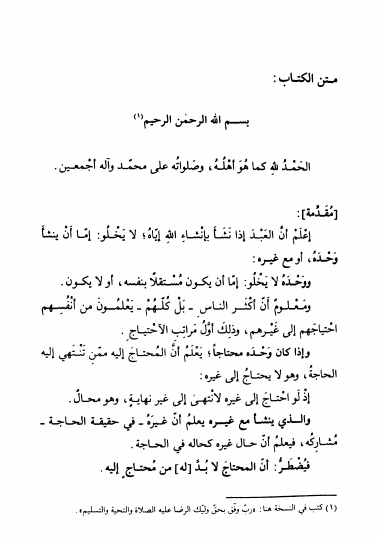 متن الكتاب:
بسم الله الرحمٰن الرحيم(١)
الحَمْدُ للهِ كما هُوَ أَهْلُهُ، وصَلواتُه على محمّد وآله أَجْمعين.
[مُقَدِّمة]:
إعْلَمْ أنَّ العَبْدَ إذا نَشَأَ بإنْشاءِ اللهِ إيّاهُ؛ لا يَخْلُو: إمّا أنْ ينشأ
وَحْدَهُ، أو مع غيره:
ووَحْدَهُ لا يَخْلُو: إمّا أن يكون مُسْتقلّاً بنفسه، أو لا يكون.
ومَعْلُومٌ أنَّ أكثرَ الناسِ ـ بَلْ كُلّهُمْ ـ يَعْلَمُونَ من أَنْفُسِهم
احتياجَهم إلى غَيْرِهم، وذلك أوَّلُ مَراتِبِ الاحْتياجِ.
وإذا كان وَحْدَه محتاجاً؛ يَعْلَمُ أنَّ المُحتاجَ إليه ممّن تَنْتَهي إليه
الحاجةُ، وهو لا يحتاجُ إلى غيره:
إذْ لَو احْتاجَ إلى غيره لانْتهىٰ إلى غير نهايةٍ، وهو محالٌ.
والذي ينشأ مع غيره يعلمُ أنّ غيرَهُ ـ في حقيقة الحاجة ـ
مُشارِكُه، فيعلمُ أنّ حال غيره كحاله في الحاجة.
فيُضْطَرُّ: أنّ المحتاجَ لا بُدَّ [له] من مُحتاجٍ إليه.
(١) كتب في النسخة هنا: «ربّ وفّق بحقّ وليّك الرضا عليه الصلاة والتحية والتسليم».